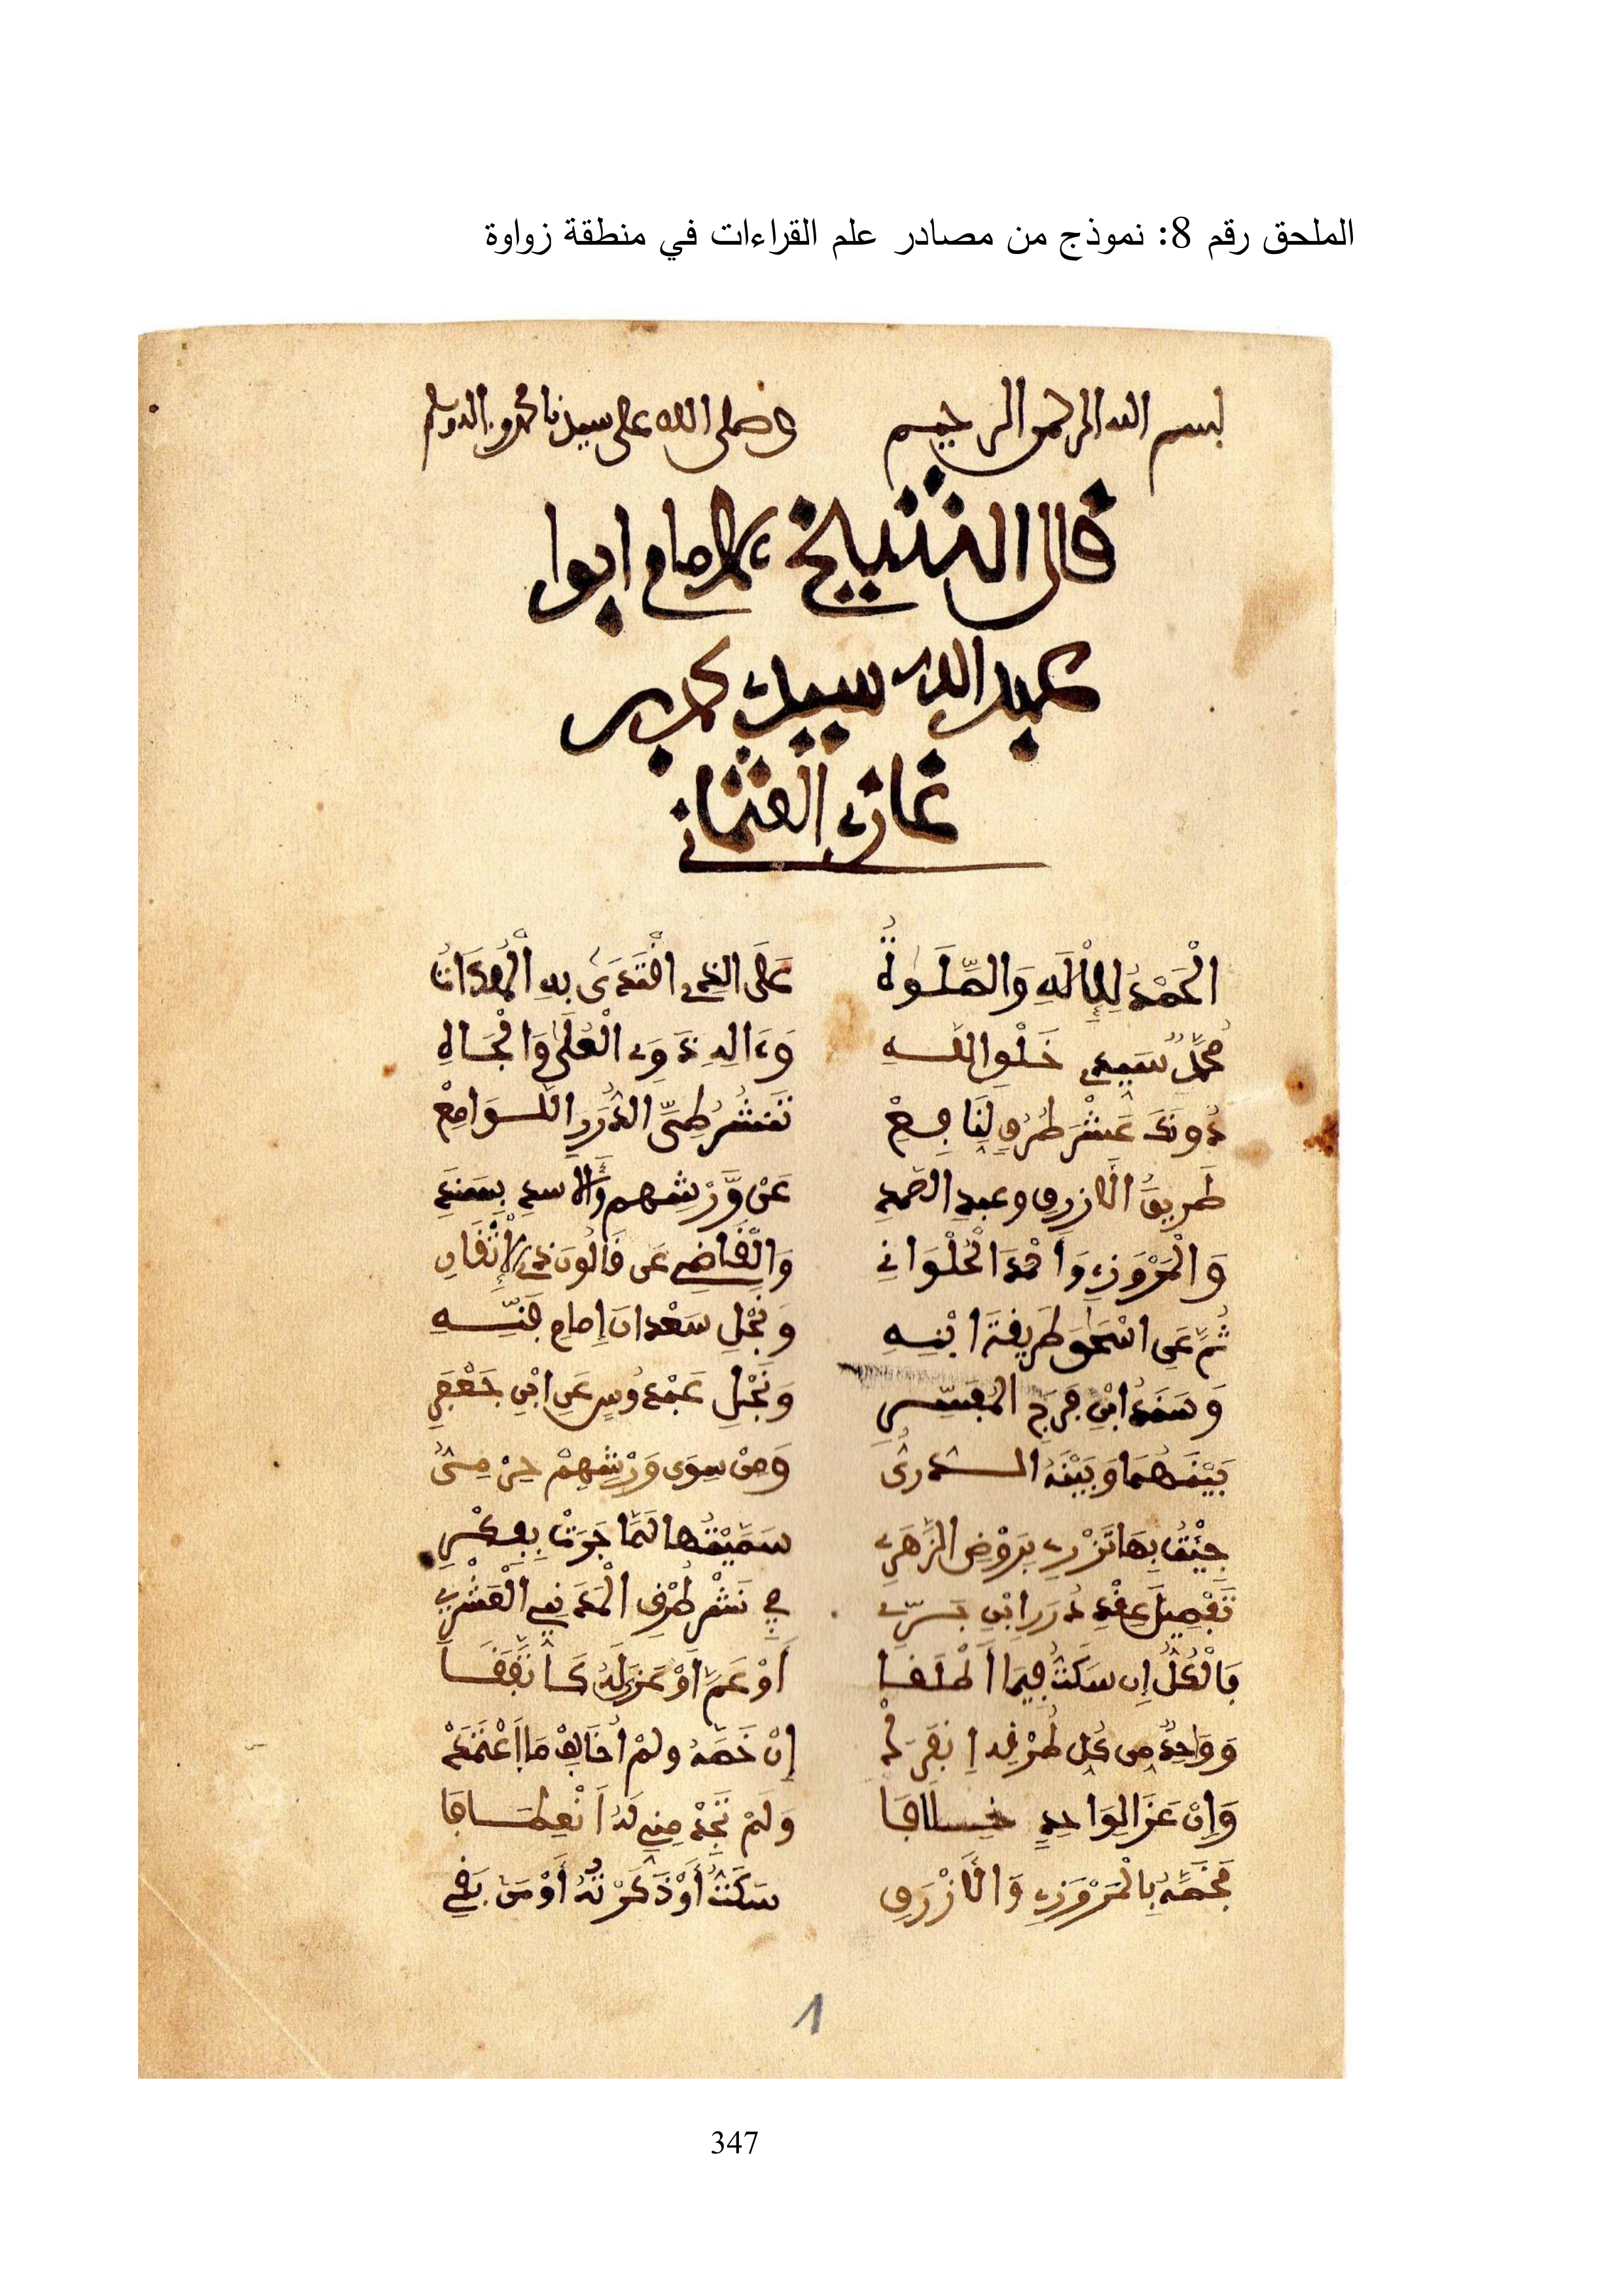 الملحق رقم 8: نموذج من مصادر علم القراءات في منطقة زواوة
بسم الله الرحمن الرحيم وصلى الله على سيدنا محمد وءاله وسلم
قال الشيخ الامام ابوا
عبد الله سيدي محمد بن
غازي العثماني
الْحَمْدُ لِلْإِلَهِ وَالصَّلَوٰةُ عَلَى الذِي اقْتَدَى بِهِ الْهُدَاتُ
مُحَمَّدٌ سَيِّدِ خَلْقِ اللَّهِ وَءَالِهِ ذَوِي الْعُلَى وَالْجَاهِ
دُونَكَ عَشْرَ طُرُقٍ لِنَافِعْ تَنْشُرُ طَيَّ الدُّرَرِ اللَّوَامِعْ
طَرِيقُ الَازْرَقِ وعبدِ الصَّمَدِ عَنْ وَّرْشِهِم وَالاسدِي بِسَنَدِ
وَالْمَرْوَزِي وَأَحْمَدَ الْحُلْوَانِي وَالْقَاضِي عَن قَالُونَ ذِي الْإِتْقَانِ
ثُمَّ عَنِ اسْحَٰقَ طَرِيقَةَ ابْنِهِ وَنَجْلِ سَعْدَانَ إِمَامِ فَنِّهِ
وَسَنَدُ ابْنِ فَرَجِ الْمُفَسِّرِ وَنَجْلِ عَبْدُوسٍ عَنِ ابْنِ جَعْفَرِ
بَيْنَهُمَا وَبَيْنَهُ الدُّورِيُّ وَمَنْ سِوَى وَرْشِهِمْ حِرْمِيُّ
جِئْتُ بِهَا تَزْرِي بِرَوْضِ الزَّهْرِ سَمَيْتُهَا لَمَّا جَرَتْ بِفِكْرِي
تَفْصِيلَ عِقْدِ دُرَرِ ابْنِ بَرِّي فِي نَشْرِ طُرْقِ الْمَدَنِي الْعَشْرِ
فَالْكُلُّ إِن سَكَتُّ فِيمَا أَطْلَقَا أَوْ عَمَّ أَوْ عَزَى لَهُ
وَوَاحِدٌ مِن كُلِ طُرْقِه إِنْ خَصَّهُ ولمْ أُخَالِفْ مَا اعْتَمَدْ
وَإِنْ عَزَا لِوَاحِدٍ خِلَافَا وَلَمْ تَجِدْ مِنِّي لَهُ انْعِطَافَا
فَخُصَّهُ بِالْمَرْوَزِي وَالَازْرَقِ سَكَتُّ أَوْ ذَكَرْتُهُ أَوْ مَنْ بَقِي
1
347